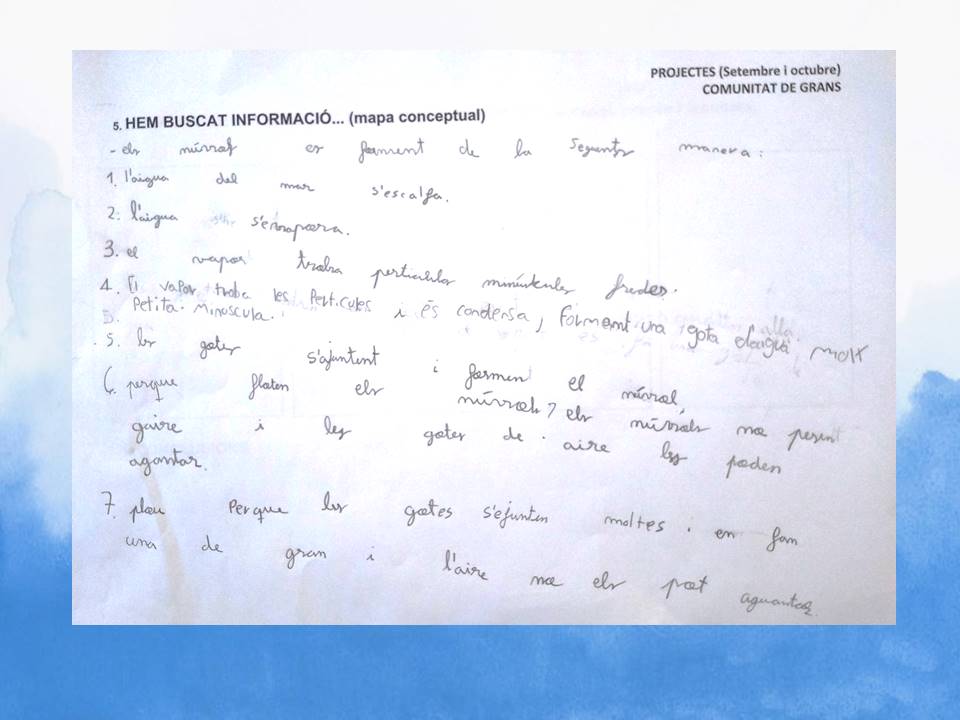 PROJECTES (Setembre i octubre)
COMUNITAT DE GRANS
5. HEM BUSCAT INFORMACIÓ... (mapa conceptual)
- els núvols es forment de la següents manera:
1. l'aigua del mar s'escalfa.
2. l'aigua s'envapora.
3. el vapor troba perticules minúscules fredes.
4. El vapor troba les Perticules i és condensa, formemt una gota d'aigua molt
Petita. Minoscula.
5. les gotes s'ajuntent i formen el núvol,
6. perque floten els núvols? els núvols no pesent
gaire i les gotes de aire les poden
agontar.
7. plou Perque les gotes s'ejunten moltes i en fan
una de gran i l'aire no els pot aguantar.